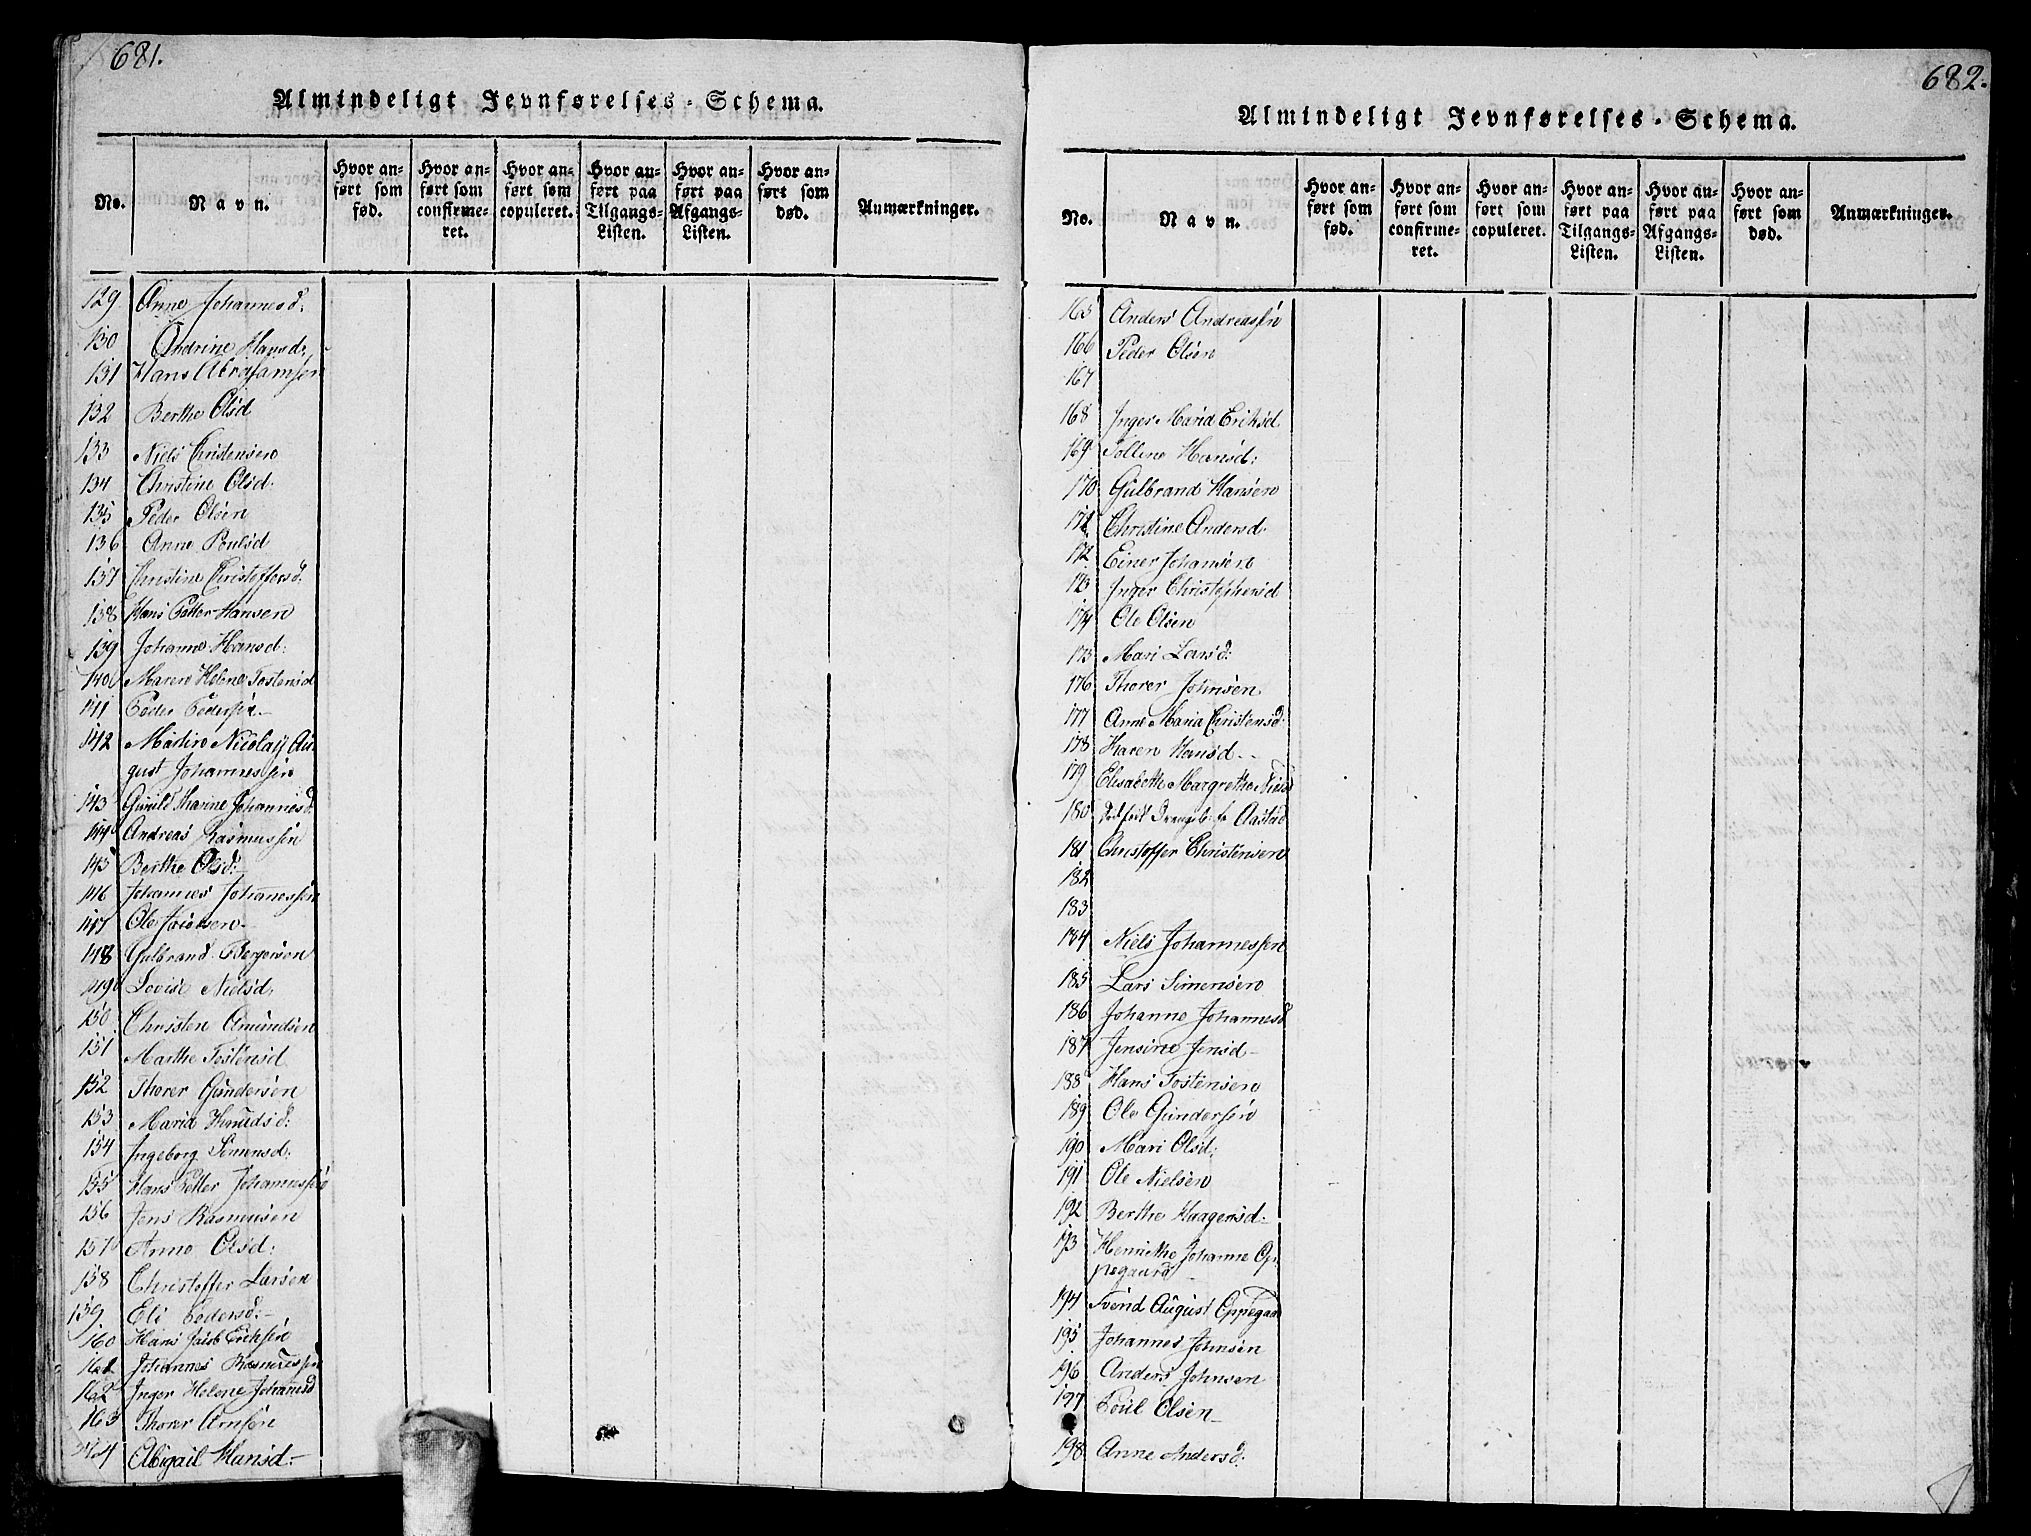 681.
Almindeligt Jevnførelses-Schema.
No.
Navn.
Hvor anført som fød.
Hvor anført som confirmeret.
Hvor anført som copuleret.
Hvor anført paa Tilgangs-Listen.
Hvor anført paa Afgangs-Listen.
Hvor anført som død.
Anmærkninger.
129 Anne Johannesd:
130 Andrine Hansd:
131 Hans Abrahamsen
132 Berthe Olsd
133 Niels Christensen
134 Christine Olsd.
135 Peder Olsen
136 Anne Poulsd
137 Christine Christoffersd.
138 Hans Petter Hansen
139 Johanne Hansd:
140 Maren Helene Tostensd
141 Peder Pedersen
142 Martin Nicolay Au
gust Johannessen
143 Gunild Marine Johannesd.
144 Andreas Rasmussen
145 Berthe Olsd:
146 Johannes Johannessen
147 Ole
148 Gulbrand Bergersen
149 Lovise Nielsd,
150 Christen Amundsen
151 Marthe Tostensd
152 Thorer Gundersen
153 Maria Knudsd:
154 Ingeborg Simensd:
155 Hans Petter Johannessen
156 Jens Rasmusen
157 Anne Olsd:
158 Christoffer Larsen
159 Eli Pedersd:
160 Hans Jacob Eriksen
161 Johannes Rasmussen
162 Inger Helene Johansd
163 Thorer Arnsen
164 Abigail Hansd:
682.
Almindeligt Jevnførelses-Schema.
No.
Navn.
Hvor anført som fød.
Hvor anført som confirmeret.
Hvor anført som copuleret.
Hvor anført paa Tilgangs-Listen.
Hvor anført paa Afgangs-Listen.
Hvor anført som død.
Anmærkninger.
165 Anders Andreassen
166 Peder Olsen
167
168 Inger Maria Eriksd
169 Solline Hansd:
170 Gulbrand Hansen
171 Christine Andersd.
172 Einer Johansen
173 Inger Christophersd
174 Ole Olsen
175 Mari Larsd:
176 Thorer Johnsen
177 Anne Maria Christensd:
178 Karen Hansd
179 Elisabeth Margrethe Nielsd
180 Aastad
181 Christoffer Christensen
182
183
184 Niels Johannessen
185 Lars Simensen
186 Johanne Johannesd
187 Jensine Jensd
188 Hans Tostensen
189 Ole Gundersen
190 Mari Olsd:
191 Ole Nielsen
192 Berthe Haagensd:
193 Henrikke Johanne Op
pegaard
194 Svend August Oppegaa
195 Johannes Johnsen
196 Anders Johnsen
197 Poul Olsen
198 Anne Andersd: